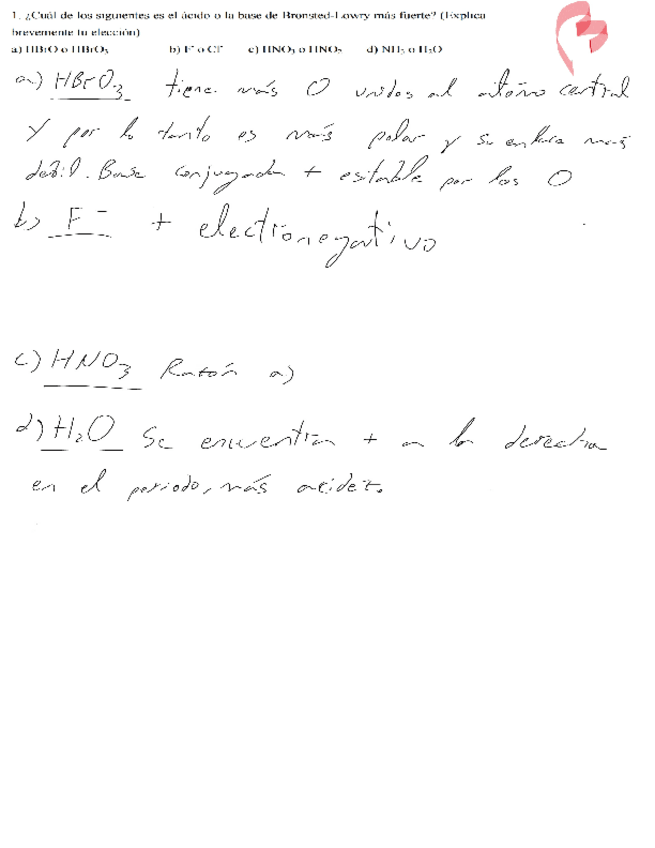 1. ¿Cuál de los siguientes es el ácido o la base de Bronsted-Lowry más fuerte? (Explica
brevemente tu elección)
a) HBrO o HBrO₃ b) F⁻ o Cl⁻ c) HNO₃ o HNO₂ d) NH₃ o H₂O
a) HBrO₃ tiene más O unidos al átomo central
y por lo tanto es más polar y su enlace más
débil. Base conjugada + estable por los O
b) F⁻ + electronegativo
c) HNO₃ Razón a)
d) H₂O Se encuentra + a la derecha
en el periodo, más acidez.